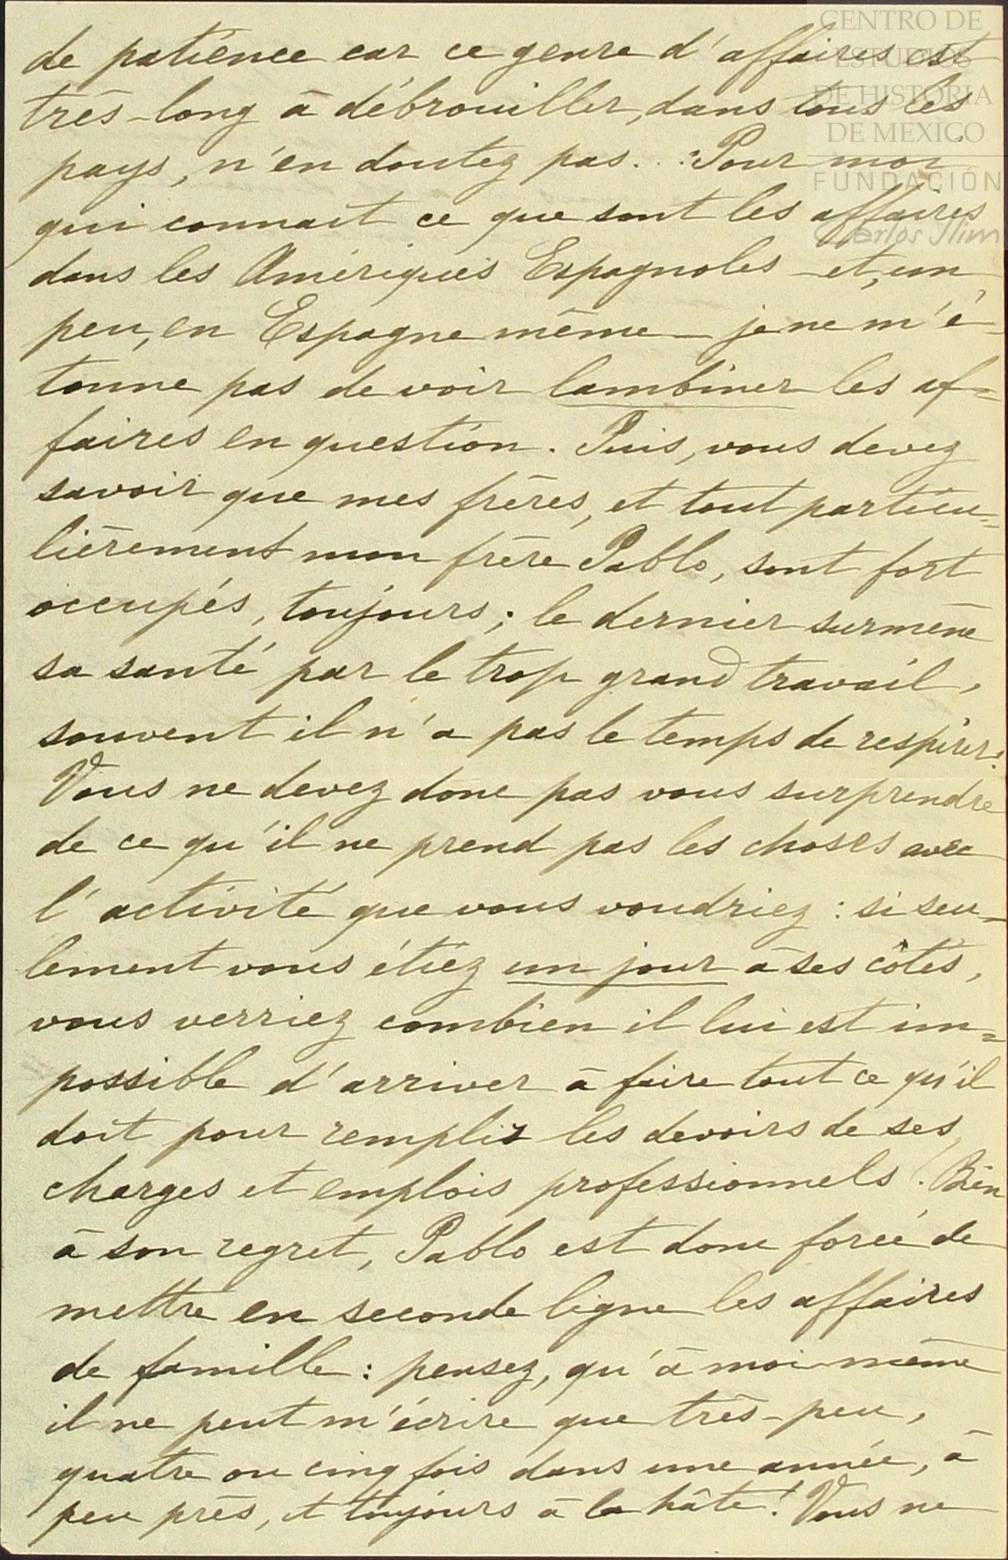 CENTRO DE
ESTUDIOS
DE HISTORIA
DE MEXICO
FUNDACIÓN
Carlos Slim
de patience car ce genre d'affaires est
très-long à débrouiller, dans tous les
pays, n'en doutez pas... Pour moi
qui connait ce que sont les affaires
dans les Amériques Espagnoles et, un
peu, en Espagne même — je ne m'é-
tonne pas de voir lambiner les af=
faires en question. Puis, vous devez
savoir que mes frères, et tout particu=
lièrement mon frère Pablo, sont fort
occupés, toujours; le dernier surmène
sa santé par le trop grand travail,
souvent il n'a pas le temps de respirer.
Vous ne devez donc pas vous surprendre
de ce qu'il ne prend pas les choses avec
l'activité que vous voudriez: si seu=
lement vous étiez un jour à ses côtés,
vous verriez combien il lui est im=
possible d'arriver à faire tout ce qu'il
doit pour remplir les devoirs de ses
charges et emplois professionnels! Bien
à son regret, Pablo est donc forcé de
mettre en seconde ligne les affaires
de famille: pensez, qu'à moi-même
il ne peut m'écrire que très-peu,
quatre ou cinq fois dans une année, à
peu près, et toujours à la hâte! Vous ne